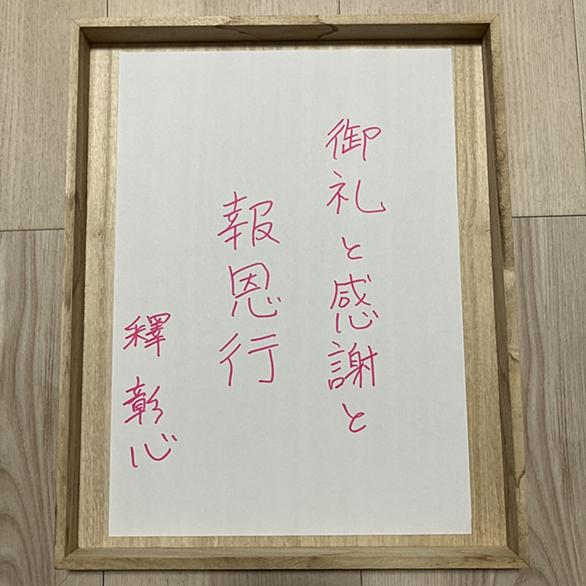 御礼と感謝と
報恩行
釋彰心